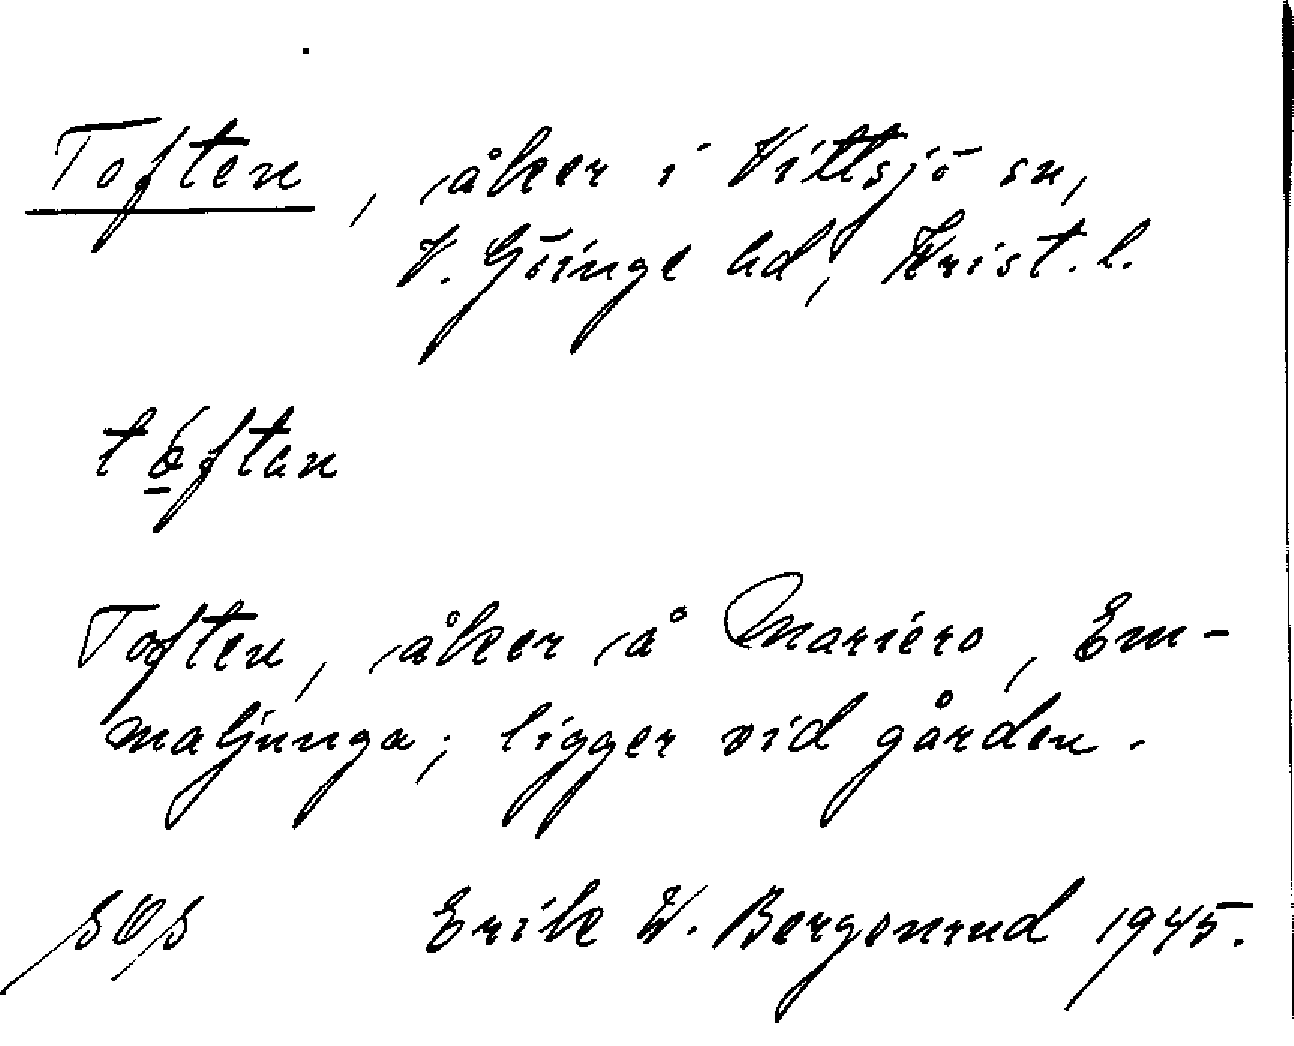 Toften, åker i Vittsjö sn,
V. Göinge hd, Krist. l.
tòftan
Toften, åker å Mariero, Em-
maljunga; ligger vid gården.
Erik W. Bergstrand 1945.